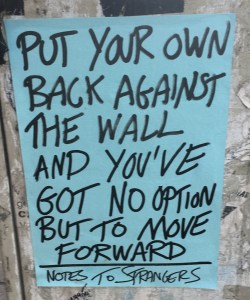 PUT YOUR OWN
BACK AGAINST
THE WALL
AND YOU'VE
GOT NO OPTION
BUT TO MOVE
FORWARD
NOTES TO STRANGERS